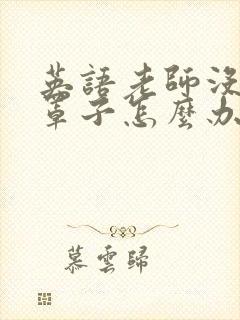 英語老師沒
罩子怎麼办
慕雲歸